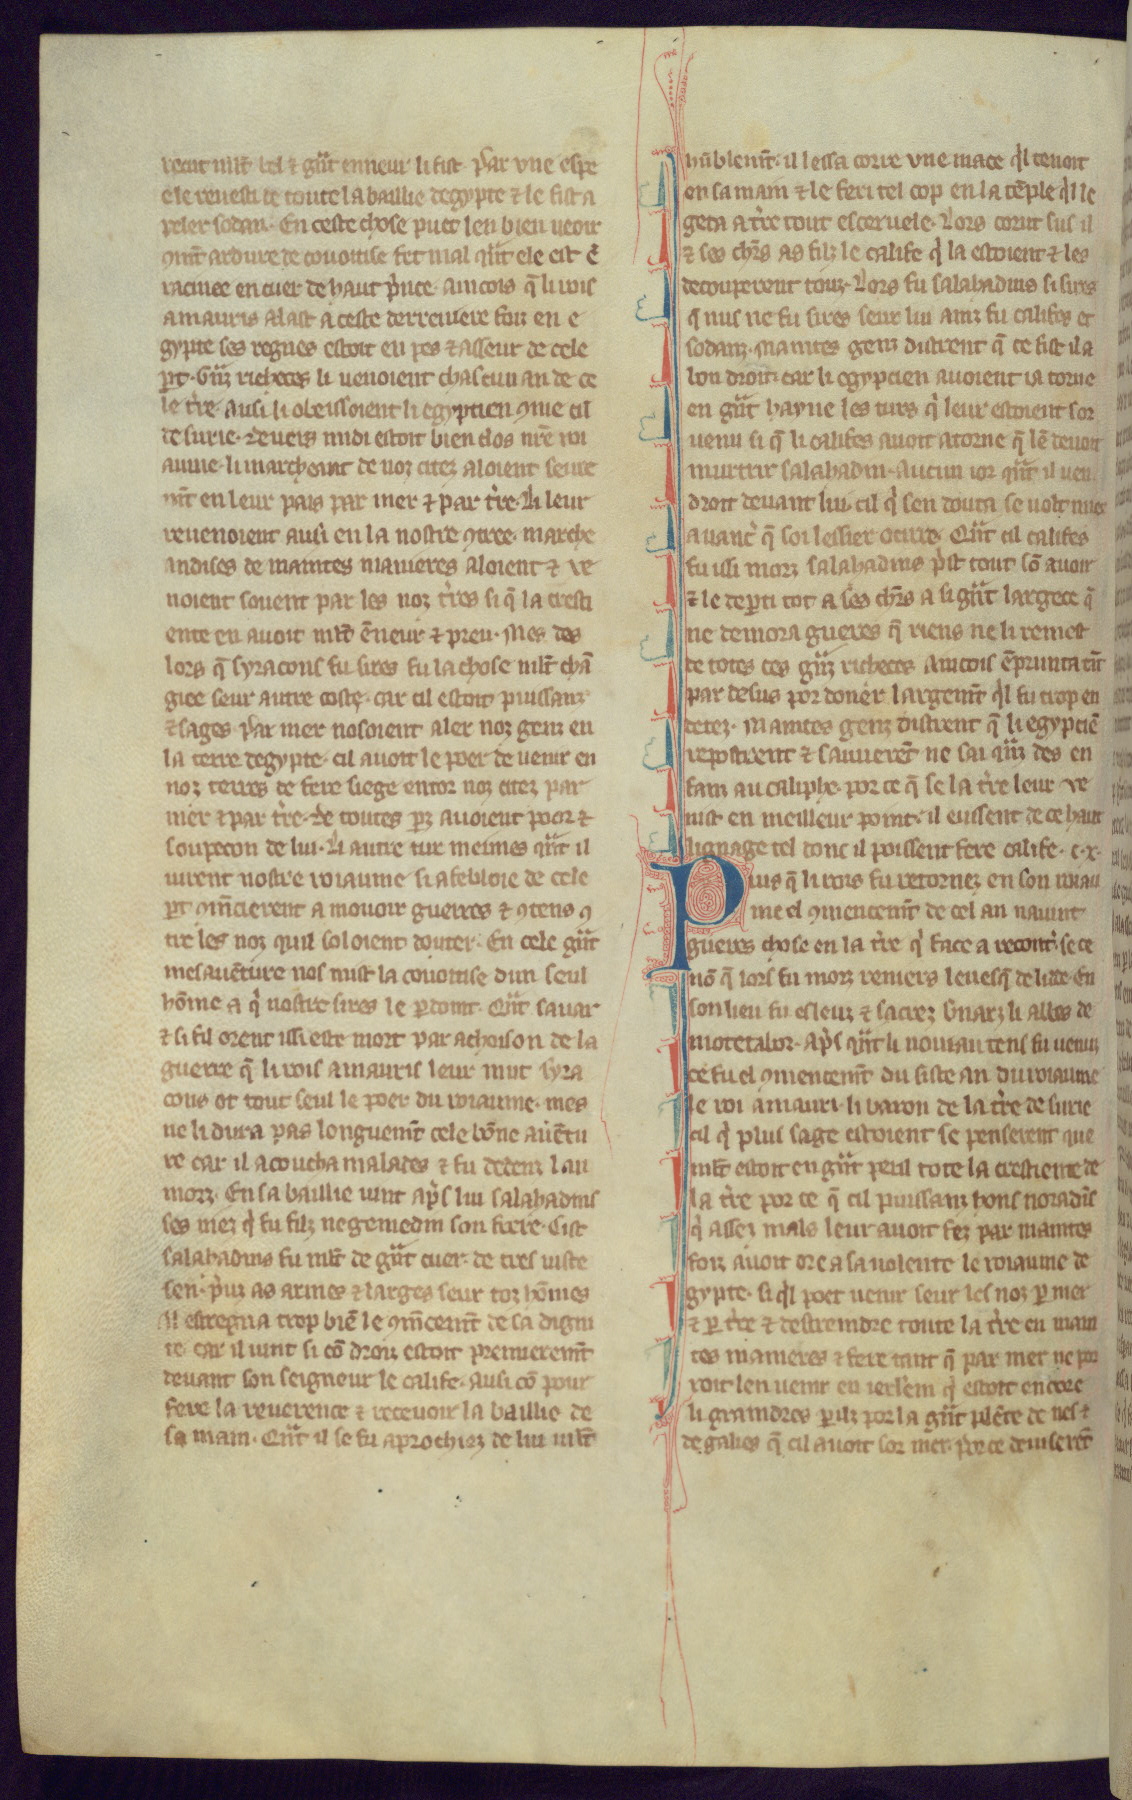 recut ml̃t bel ⁊ gñt enneur li fist. Par une espe
e le revesti de toute la baillie degypte ⁊ le fist a
peler sodan. En ceste chose puet len bien veoir
9m̃t ardure de covoitise fet mal qñt ele est ẽ
racinee en cuer de haut p̃nce. Aincois q̃ li rois
amauris alast a ceste derreniere foiz en e
gypte ses regnes estoit en pes ⁊ asseur de cele
p̱t. Gñz richeces li venoient chascun an de ce
le t̃re. Ausi li obeissoient li egyptien 9me cil
de surie. Devers midi estoit bien clos nr̃e roi
aume. li marcheant de noz citez aloient seure
mñt en leur pais par mer ⁊ par t̃re. Li leur
revenoient ausi en la nostre 9tree. marche
andises de maintes manieres aloient ⁊ ve
noient sovent par les noz t̃res si q̃ la cresti
ente en avoit ml̃t ẽneur ⁊ preu. Mes des
lors q̃ syracons fu sires fu la chose ml̃t chã
giee seur autre coste. car cil estoit puissanz
⁊ sages. Par mer nosoient aler noz genz en
la terre degypte. cil avoit le poer de venir en
noz terres de fere siege entor noz citez par
mer ⁊ par t̃re. De toutes p̱z avoient poor ⁊
soupecon de lui. Li autre tur meimes qñt il
virent nostre roiaume si afebloie de cele
p̱t 9mẽcierent a movoir guerres ⁊ 9tens 9
tre les noz quil soloient douter. En cele gñt
mesavẽture nos mist la covoitise dun seul
hõme a q̃ nostre sires le p̱doint. Qñt savar
⁊ si fil orent issi este mort par achoison de la
guerre q̃ li rois amauris leur mut syra
cons ot tout seul le poer du roiaume. mes
ne li dura pas longuemñt cele bõne avẽtu
re car il acoucha malades ⁊ fu dedenz lan
morz. En sa baillie vint ap̃s lui salahadins
ses niez q̃ fu filz negemedin son frere. Cist
salahadins fu ml̃t de gñt cuer. de tres viste
sen. p̃uz as armes ⁊ larges seur toz hõmes
Il estregna trop biẽ le 9mẽcemñt de sa digni
te. car il vint si cõ droiz estoit premieremñt
devant son seigneur le calife. Ausi cõ pour
fere la reverence ⁊ recevoir la baillie de
sa main. Qñt il se fu aprochiez de lui ml̃t
hũblemñt. il lessa corre une mace q̃l tenoit
en sa main ⁊ le feri tel cop en la tẽple q̃l le
geta a t̃re tout escervele. Lors corut sus il
⁊ ses ch̃rs as filz le calife q̃ la estoient ⁊ les
decouperent touz. Lors fu salahadins si sires
q̃ nus ne fu sires seur lui ainz fu califes et
sodanz. Maintes genz distrent q̃ ce fist il a
bon droit. car li egypcien avoient ia torne
en gñt hayne les turs q̃ leur estoient sor
venu si q̃ li califes avoit atorne q̃ lẽ devoit
murtrir salahadin. Aucun ior qñt il ven
droit devant lui. cil q̃ sen douta se volt mieẓ
avanc̃ q̃ soi lessier ocirre. Qñt cil califes
fu issi morz salahadins p̃st tout sõ avoir
⁊ le dep̱ti tot a ses ch̃rs a si gñt largece q̃
ne demora gueres q̃ riens ne li remest
de totes ces gñz richeces. Aincois ẽprunta tñt
par desus por doner largemñt q̃l fu trop en
detez. Maintes genz distrent q̃ li egypciẽ
repostrent ⁊ sauverẽt ne sai qñz des en
fanz au caliphe. por ce q̃ se la t̃re leur ve
nist en meilleur point. il eussent de ce haut
lignage tel donc il poissent fere calife. c.x.
Puis q̃ li rois fu retornez en son roiau
me el 9mencemñt de cel an navint
gueres chose en la t̃re q̃ face a recont̃. se ce
nõ q̃ lors fu morz reniers levesq̃ de lide. En
son lieu fu esleuz ⁊ sacrez b̃narz li abbes de
montetabor. Ap̃s qñt li noviau tens fu venuz
ce fu el 9mencemñt du siste an du roiaume
le roi amauri. li baron de la t̃re de surie
cil q̃ plus sage estoient se penserent que
ml̃t estoit en gñt peril tote la crestiente de
la t̃re por ce q̃ cil puissanz hons noradĩs
q̃ assez mals leur avoit fez par maintes
foiz avoit ore a sa volente le roiaume de
gypte. si q̃l poet venir seur les noz p̱ mer
⁊ p̱ t̃re ⁊ destreindre toute la t̃re en main
tes manieres ⁊ fere tant q̃ par mer ne por
roit len venir en ierl̃em q̃ estoit encore
li graindres p̱ilz por la gñt plẽte de nes ⁊
de galies q̃ cil avoit sor mer. Por ce deviserẽt